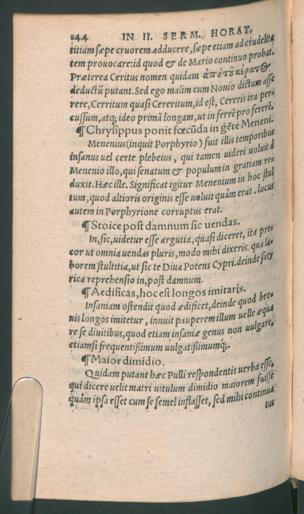 144 IN II. SERM. HORAT.
titiam sæpe cruorem adducere, sæpe etiam ad crudelita
tem prouocare: id quod & de Mario continuo probat.
Præterea Ceritus nomen quidam
deductũ putant. Sed ego malim cum Nonio dictum asse
rere, Cerritum quasi Cereritum, id est, Cereris ira per
cussum, atq; ideo primã longam, ut in ferrẽ pro ferere,
¶ Chrysippus ponit fœcũda in gẽte Meneni.
Menenius (inquit Porphyrio) fuit illis temporibus
insanus uel certe plebeius, qui tamen uideri uoluit à
Menenio illo, qui senatum & populum in gratiam re
duxit. Hæc ille. Significat igitur Menenum in hoc stul
tum, quod altioris originis esse uoluit quàm erat. locus
autem in Porphyrione corruptus erat.
¶ Stoice post damnum sic uendas.
In, sic, uidetur esse argutia, quasi diceret, ita pre
cor ut omnia uendas pluris, modo mihi dixeris: qua
borem stultitia, ut sic te Diua Potens Cypri. deinde saty
rica reprehensio in, post damnum.
¶ Aedificas, hoc est longos imitaris.
Insaniam ostendit quod ædificet, deinde quod bre
uis longos imitetur, innuit pauperem illum uelle æqua
re se diuitibus, quod etiam insaniæ genus non uulgare,
etiamsi frequentissimum uulgatissimumq;.
¶ Maior dimidio.
Quidam putant hæc Pulli respondentis uerba esse,
qui dicere uelit matri uitulum dimidio maiorem fuisse
quàm ipsa esset cum se semel inflasset, sed mihi continua
tur